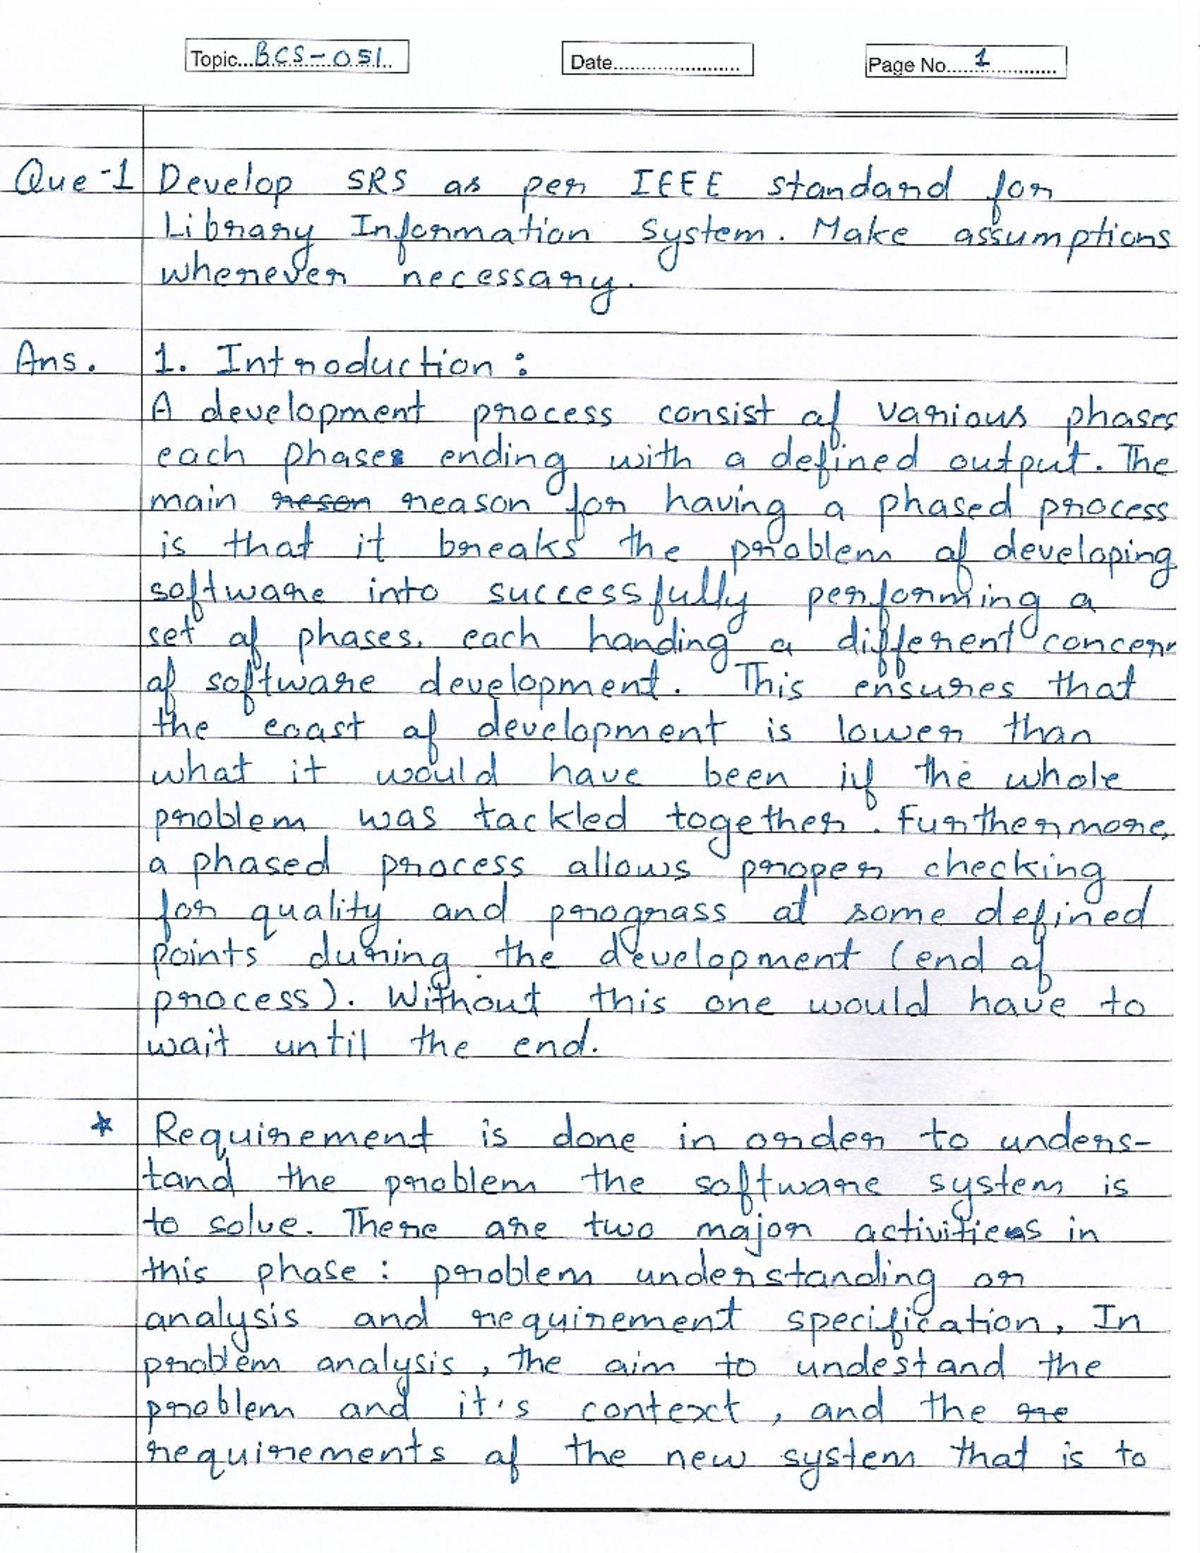 Topic...BCS-051..
Date.......................
Page No....1............
Que-1 Develop SRS as per IEEE standard for
Library Information System. Make assumptions
whenever necessary.
Ans. 1. Introduction :
A development process consist of various phases
each phases ending with a defined output. The
main reson reason for having a phased process
is that it breaks the problem of developing
software into successfully performing a
set of phases. each handing a different concern
of software development. This ensures that
the coast of development is lower than
what it would have been if the whole
problem was tackled together. Furthermore,
a phased process allows proper checking
for quality and prograss at some defined
points during the development (end of
process). Without this one would have to
wait until the end.
* Requirement is done in order to unders-
tand the problem the software system is
to solve. There are two major activities in
this phase : problem understanding or
analysis and requirement specification, In
problem analysis, the aim to undestand the
problem and it's context, and the re
requirements of the new system that is to